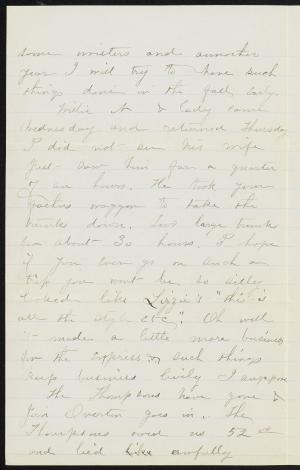 some winters and another
year I will try to have such
things done in the fall, early.
Willie A & Lady came
Wednesday and returned Thursday
I did not see his wife
just saw him for a quarter
of an hour. He took your
Fathers waggon to take the
trunks down. Two large trunks
for about 30 hours. I hope
if you ever go on such a
trip you wont be so silly
looked like Lizzie's "this is
all the style etc" Oh well
it made a little more business
for the express & such things
keep business lively I suppose
The Thompsons have gone &
Overton goes in. The
Thompsons owed us 52
and lied like awfully